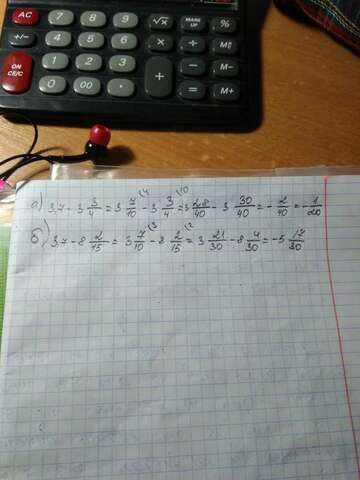 AC √x MARK UP %
+/− 7 8 9 × MU
ON CE/C 4 5 6 − M−
1 2 3 + M=
0 00 . =
а) 3,7 - 3 3/4 = 3 7/10 (4 - 3 3/4 (10 = 3 28/40 - 3 30/40 = - 2/40 = - 1/20
б) 3,7 - 8 2/15 = 3 7/10 (3 - 8 2/15 (2 = 3 21/30 - 8 4/30 = - 5 17/30